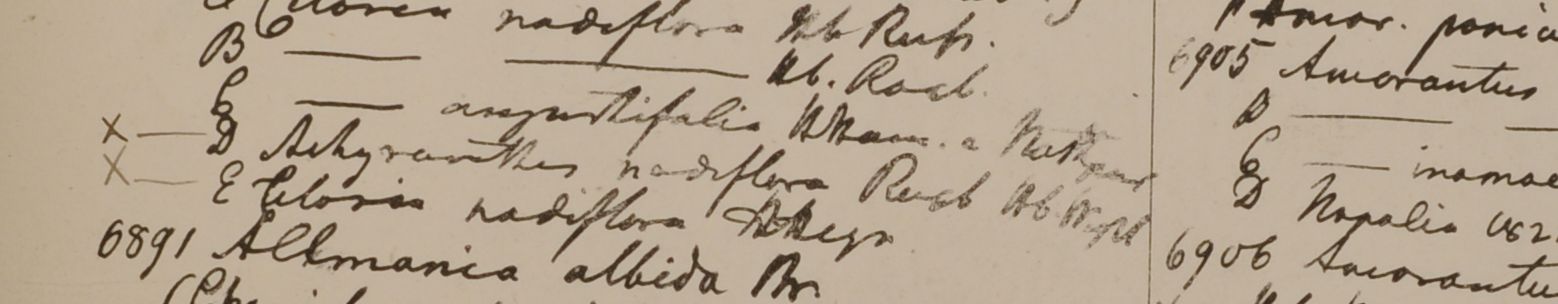 Celosia nodiflora Hb Russ.
B — — Hb. Roxb.
C — angustifolia H Ham. a
X — D Achyranthes nodiflora Roxb Hb Wight
X — E Celosia nodiflora H Heyn
6891 Allmania albida Br.
Amar. panic
6905 Amarantus
B — —
C — inamoe
D Nepalia 182
6906 Amarantu